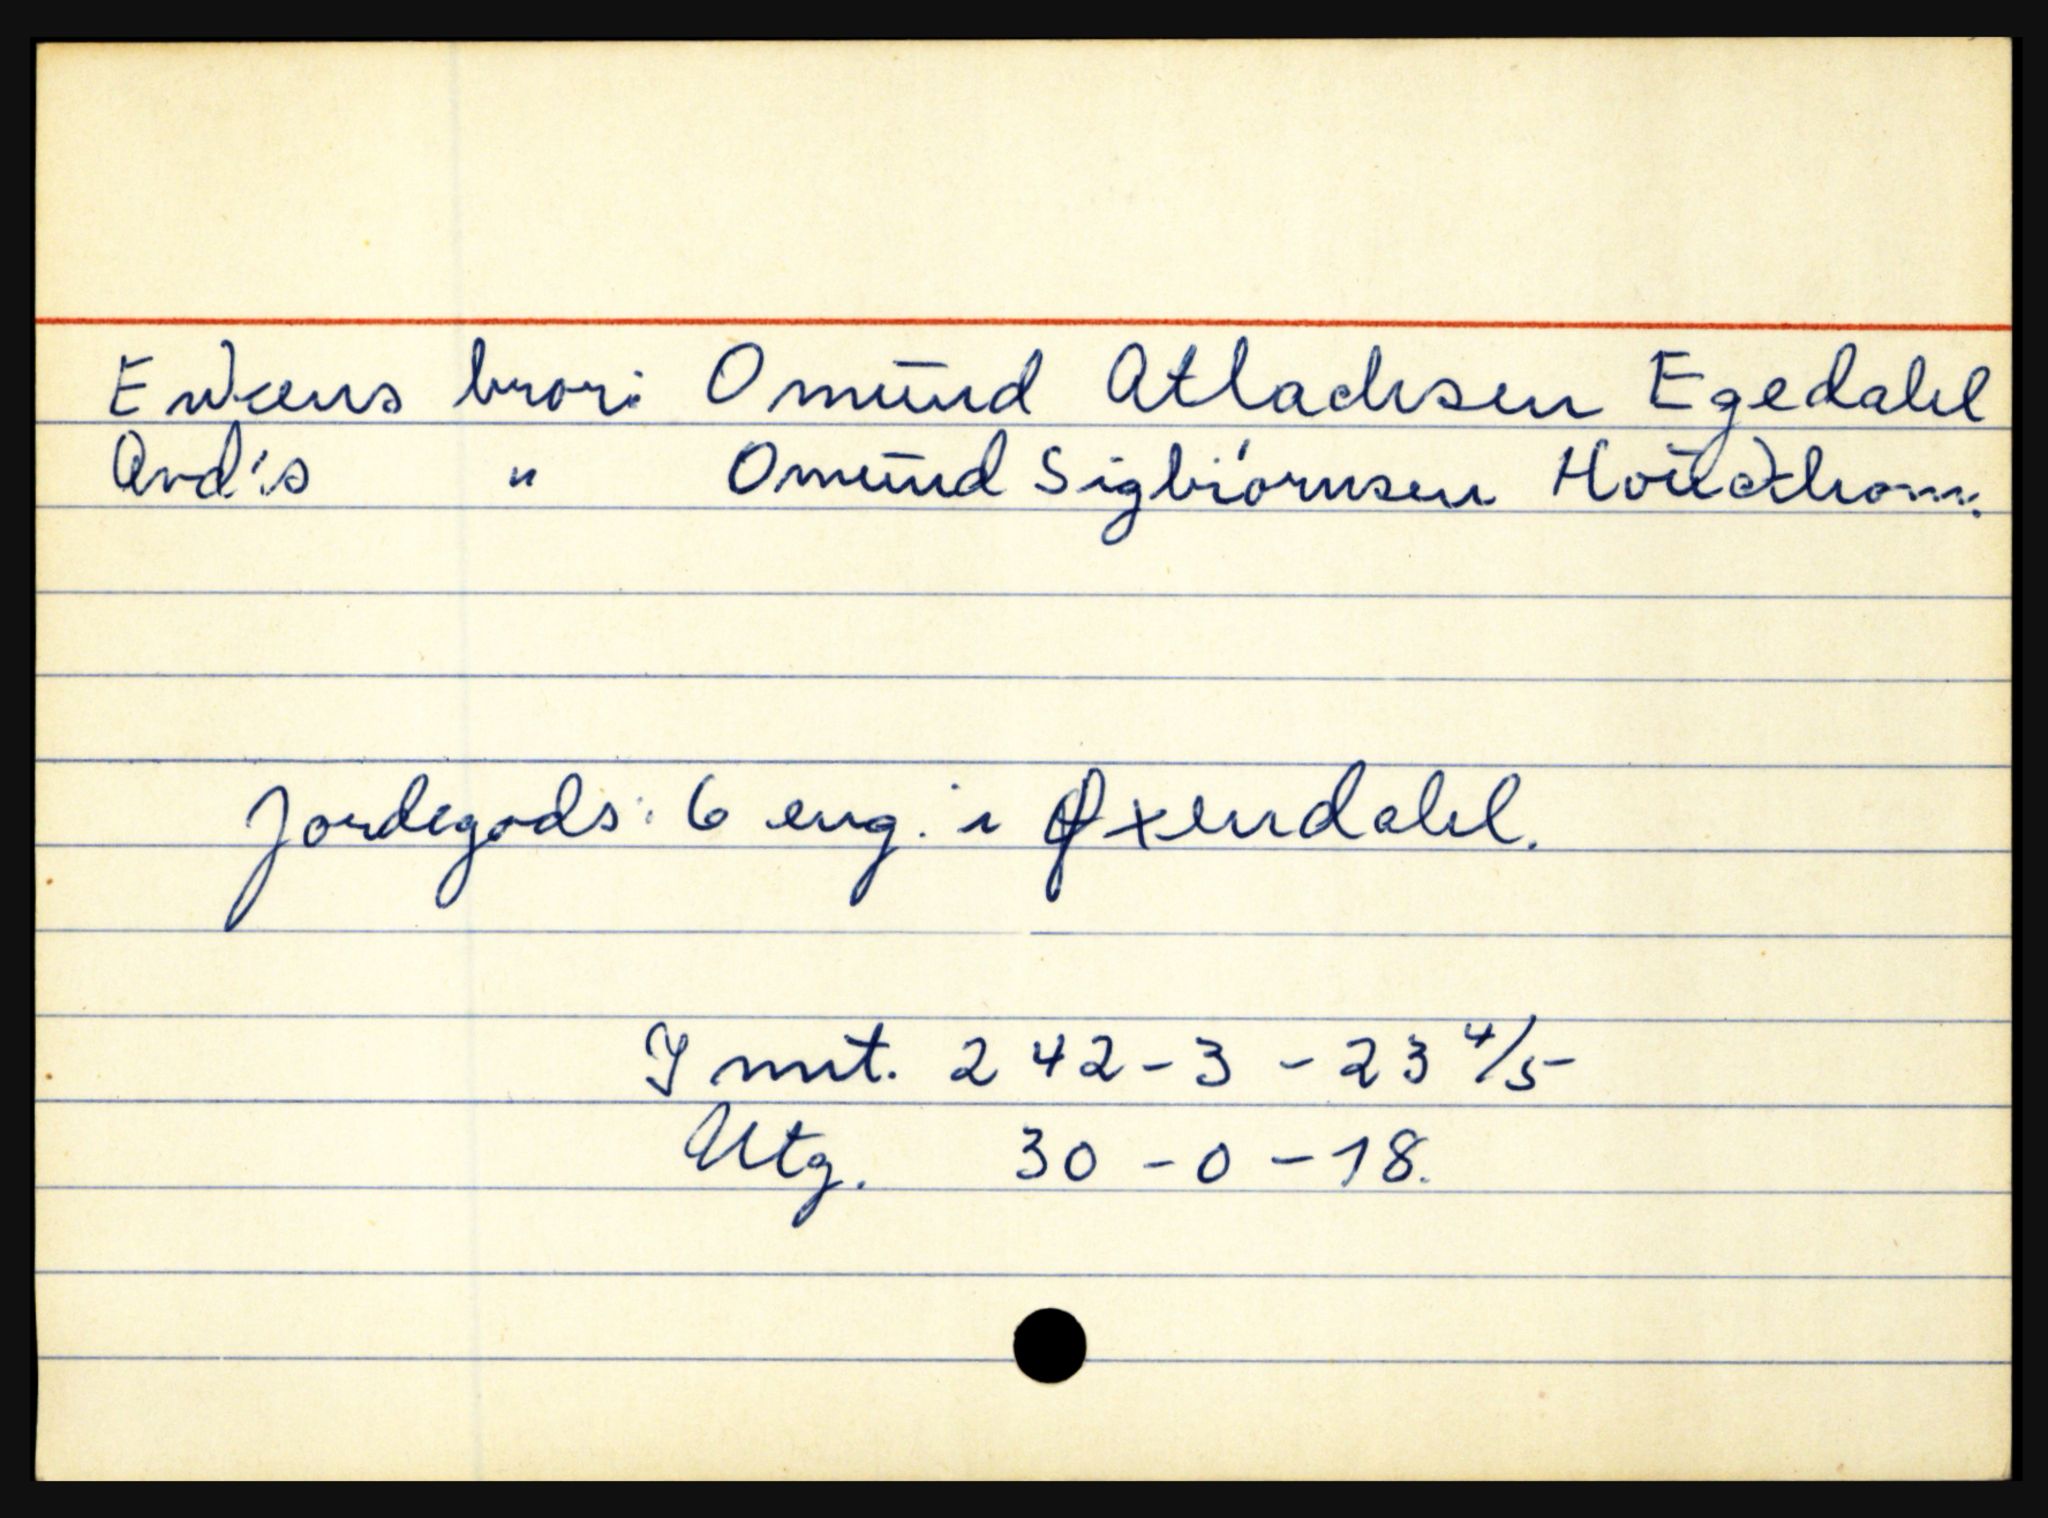 Enkens bror: Omund Atlachsen Egedahl
Avd's " Omund Sigbiørnsen
Jordegods: 6 eng. i Øxendahl.
I mit. 242-3-23 4/5
Utg. 30-0-18.